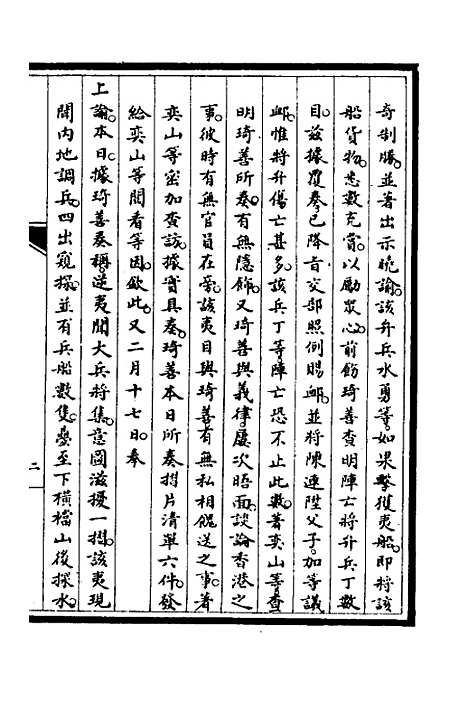 奇制勝並著出示曉諭該弁兵水勇等如果擊獲夷船即將該
船貨物悉數充賞以勵眾心前飭琦善查明陣亡將弁兵丁數
目茲據覆奏已降旨交部照例賜卹並將陳連陞父子加等議
卹惟將弁傷亡甚多該兵丁等陣亡恐不止此數著奕山等查
明琦善所奏有無隱飾又琦善與義律屢次晤面談論香港之
事彼時有無官員在旁該夷目與琦善有無私相餽送之事著
奕山等密加查訪據實具奏琦善本日所奏摺片清單六件發
給奕山等閱看等因欽此又二月十七日奉
上諭本日據琦善奏稱逆夷聞大兵將集意圖滋擾一摺該夷現
聞內地調兵四出窺探並有兵船數隻臺至下橫檔山後探水
二